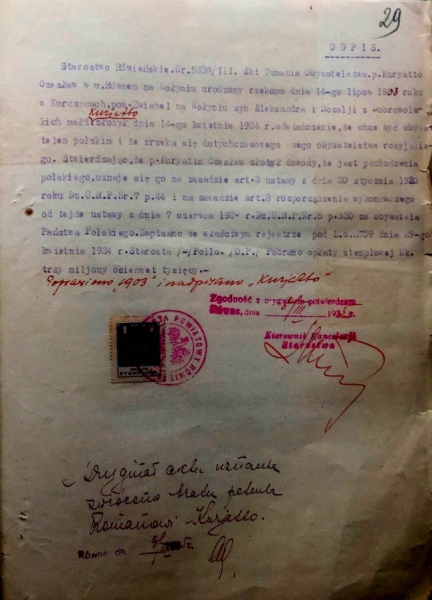 29
O D P I S.
Starostwo Rówieńskie.Nr.5339/III. Akt Uznania Obywatelstwa.p.Kuryatto
Czesław w m.Równem na Wołyniu urodzony rzekomo dnia 14-go lipca 1903 roku
w Kurczycach,pow.Zwiahel na Wołyniu syn Aleksandra i Rozalji z Dobrowol-
Kurjatto
skich małż.złożył dnia 14-go kwietnia 1934 r.oświadczenie,że chce być obywa-
telem polskim i że zrzeka się dotychczasowego swego obywatelstwa rosyjskie-
go. Stwierdzając,że p.Kuryatto Czesław złożył dowody,że jest pochodzenia
polskiego,uznaje się go na zasadzie art.3 ustawy z dnia 20 stycznia 1920
roku Dz.U.R.P.Nr.7 p.44 i na zasadzie art.8 rozporządzenia wykonawczego
od tejże ustawy z dnia 7 czerwca 192 r.Dz.U.R.P.Nr.5 p.320 za obywatela
Państwa Polskiego.Zapisano we właściwym rejestrze pod L.s.3739 dnia 29-go
kwietnia 1934 r.Starosta /-/Pollo. /O.P./ Pobrano opłaty stemplowej Mk.
trzy miljony osiemset tysięcy.-
Poprawiono "1903" i nadpisano "Kurjatto"
Zgodność z oryginałem potwierdzam
Równe, dnia /III 193 r.
Kierownik Kancelarji
Starostwa
Oryginał aktu uznania
zwrócono bratu petenta
Romanowi Kurjatto.
Równe dn.